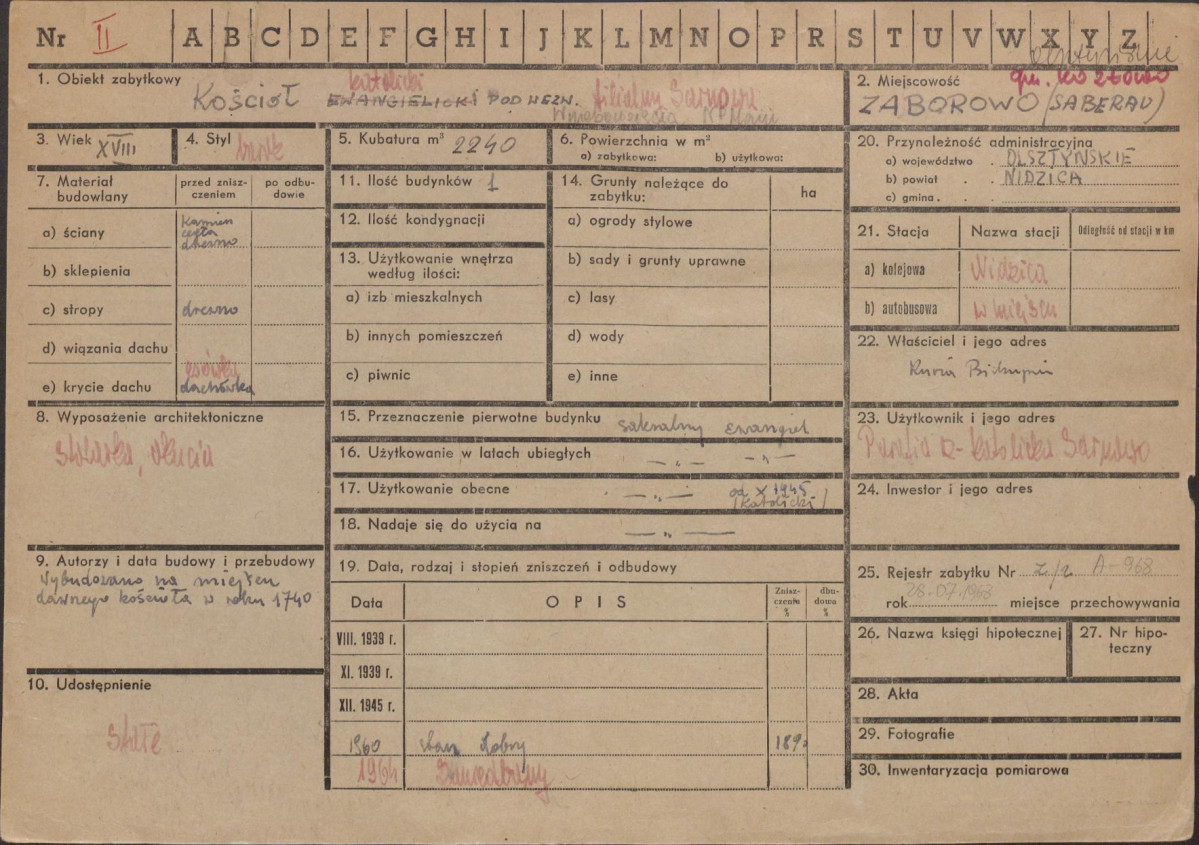 Nr II A B C D E F G H I J K L M N O P R S T U V W X Y Z
1. Obiekt zabytkowy
katolicki
Kościół EWANGIELICKI POD WEZN. filialny Sarnowo
Wniebowzięcia NMarii
2. Miejscowość gm. Kozłowo
ZABOROWO (SABERAU)
3. Wiek XVIII
4. Styl barok
5. Kubatura m³ 2240
6. Powierzchnia w m²
a) zabytkowa: b) użytkowa:
7. Materiał budowlany
przed zniszczeniem
po odbudowie
a) ściany
kamień
cegła
drewno
b) sklepienia
c) stropy drewno
d) wiązania dachu
esówka
e) krycie dachu dachówka
8. Wyposażenie architektoniczne
stolarka, okucia
9. Autorzy i data budowy i przebudowy
Wybudowano na miejscu
dawnego kościoła w roku 1740
10. Udostępnienie
stałe
11. Ilość budynków 1
12. Ilość kondygnacji
13. Użytkowanie wnętrza
według ilości:
a) izb mieszkalnych
b) innych pomieszczeń
c) piwnic
14. Grunty należące do
zabytku:
ha
a) ogrody stylowe
b) sady i grunty uprawne
c) lasy
d) wody
e) inne
15. Przeznaczenie pierwotne budynku sakralny ewangiel
16. Użytkowanie w latach ubiegłych — „ — — „ —
17. Użytkowanie obecne — „ — od X 1945
/katolicki/
18. Nadaje się do użycia na — „ —
19. Data, rodzaj i stopień zniszczeń i odbudowy
Data
OPIS
Zniszczenia %
dbudowa %
VIII. 1939 r.
XI. 1939 r.
XII. 1945 r.
1960 stan dobry 18%
1964
20. Przynależność administracyjna
a) województwo . OLSZTYŃSKIE
b) powiat . . NIDZICA
c) gmina . . .
21. Stacja
Nazwa stacji
Odległość od stacji w km
a) kolejowa Nidzica
b) autobusowa w miejscu
22. Właściciel i jego adres
Kuria Biskupia
23. Użytkownik i jego adres
Parafia R-katolicka Sarnowo
24. Inwestor i jego adres
25. Rejestr zabytku Nr A-968
rok 26.07.1968 miejsce przechowywania
26. Nazwa księgi hipotecznej
27. Nr hipoteczny
28. Akta
29. Fotografie
30. Inwentaryzacja pomiarowa